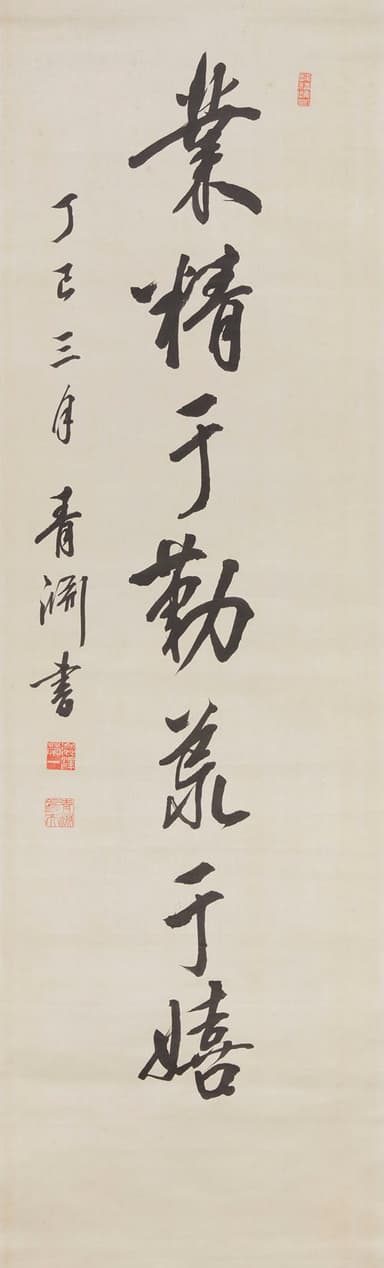 業精于勤荒于嬉
丁巳三月 青淵書